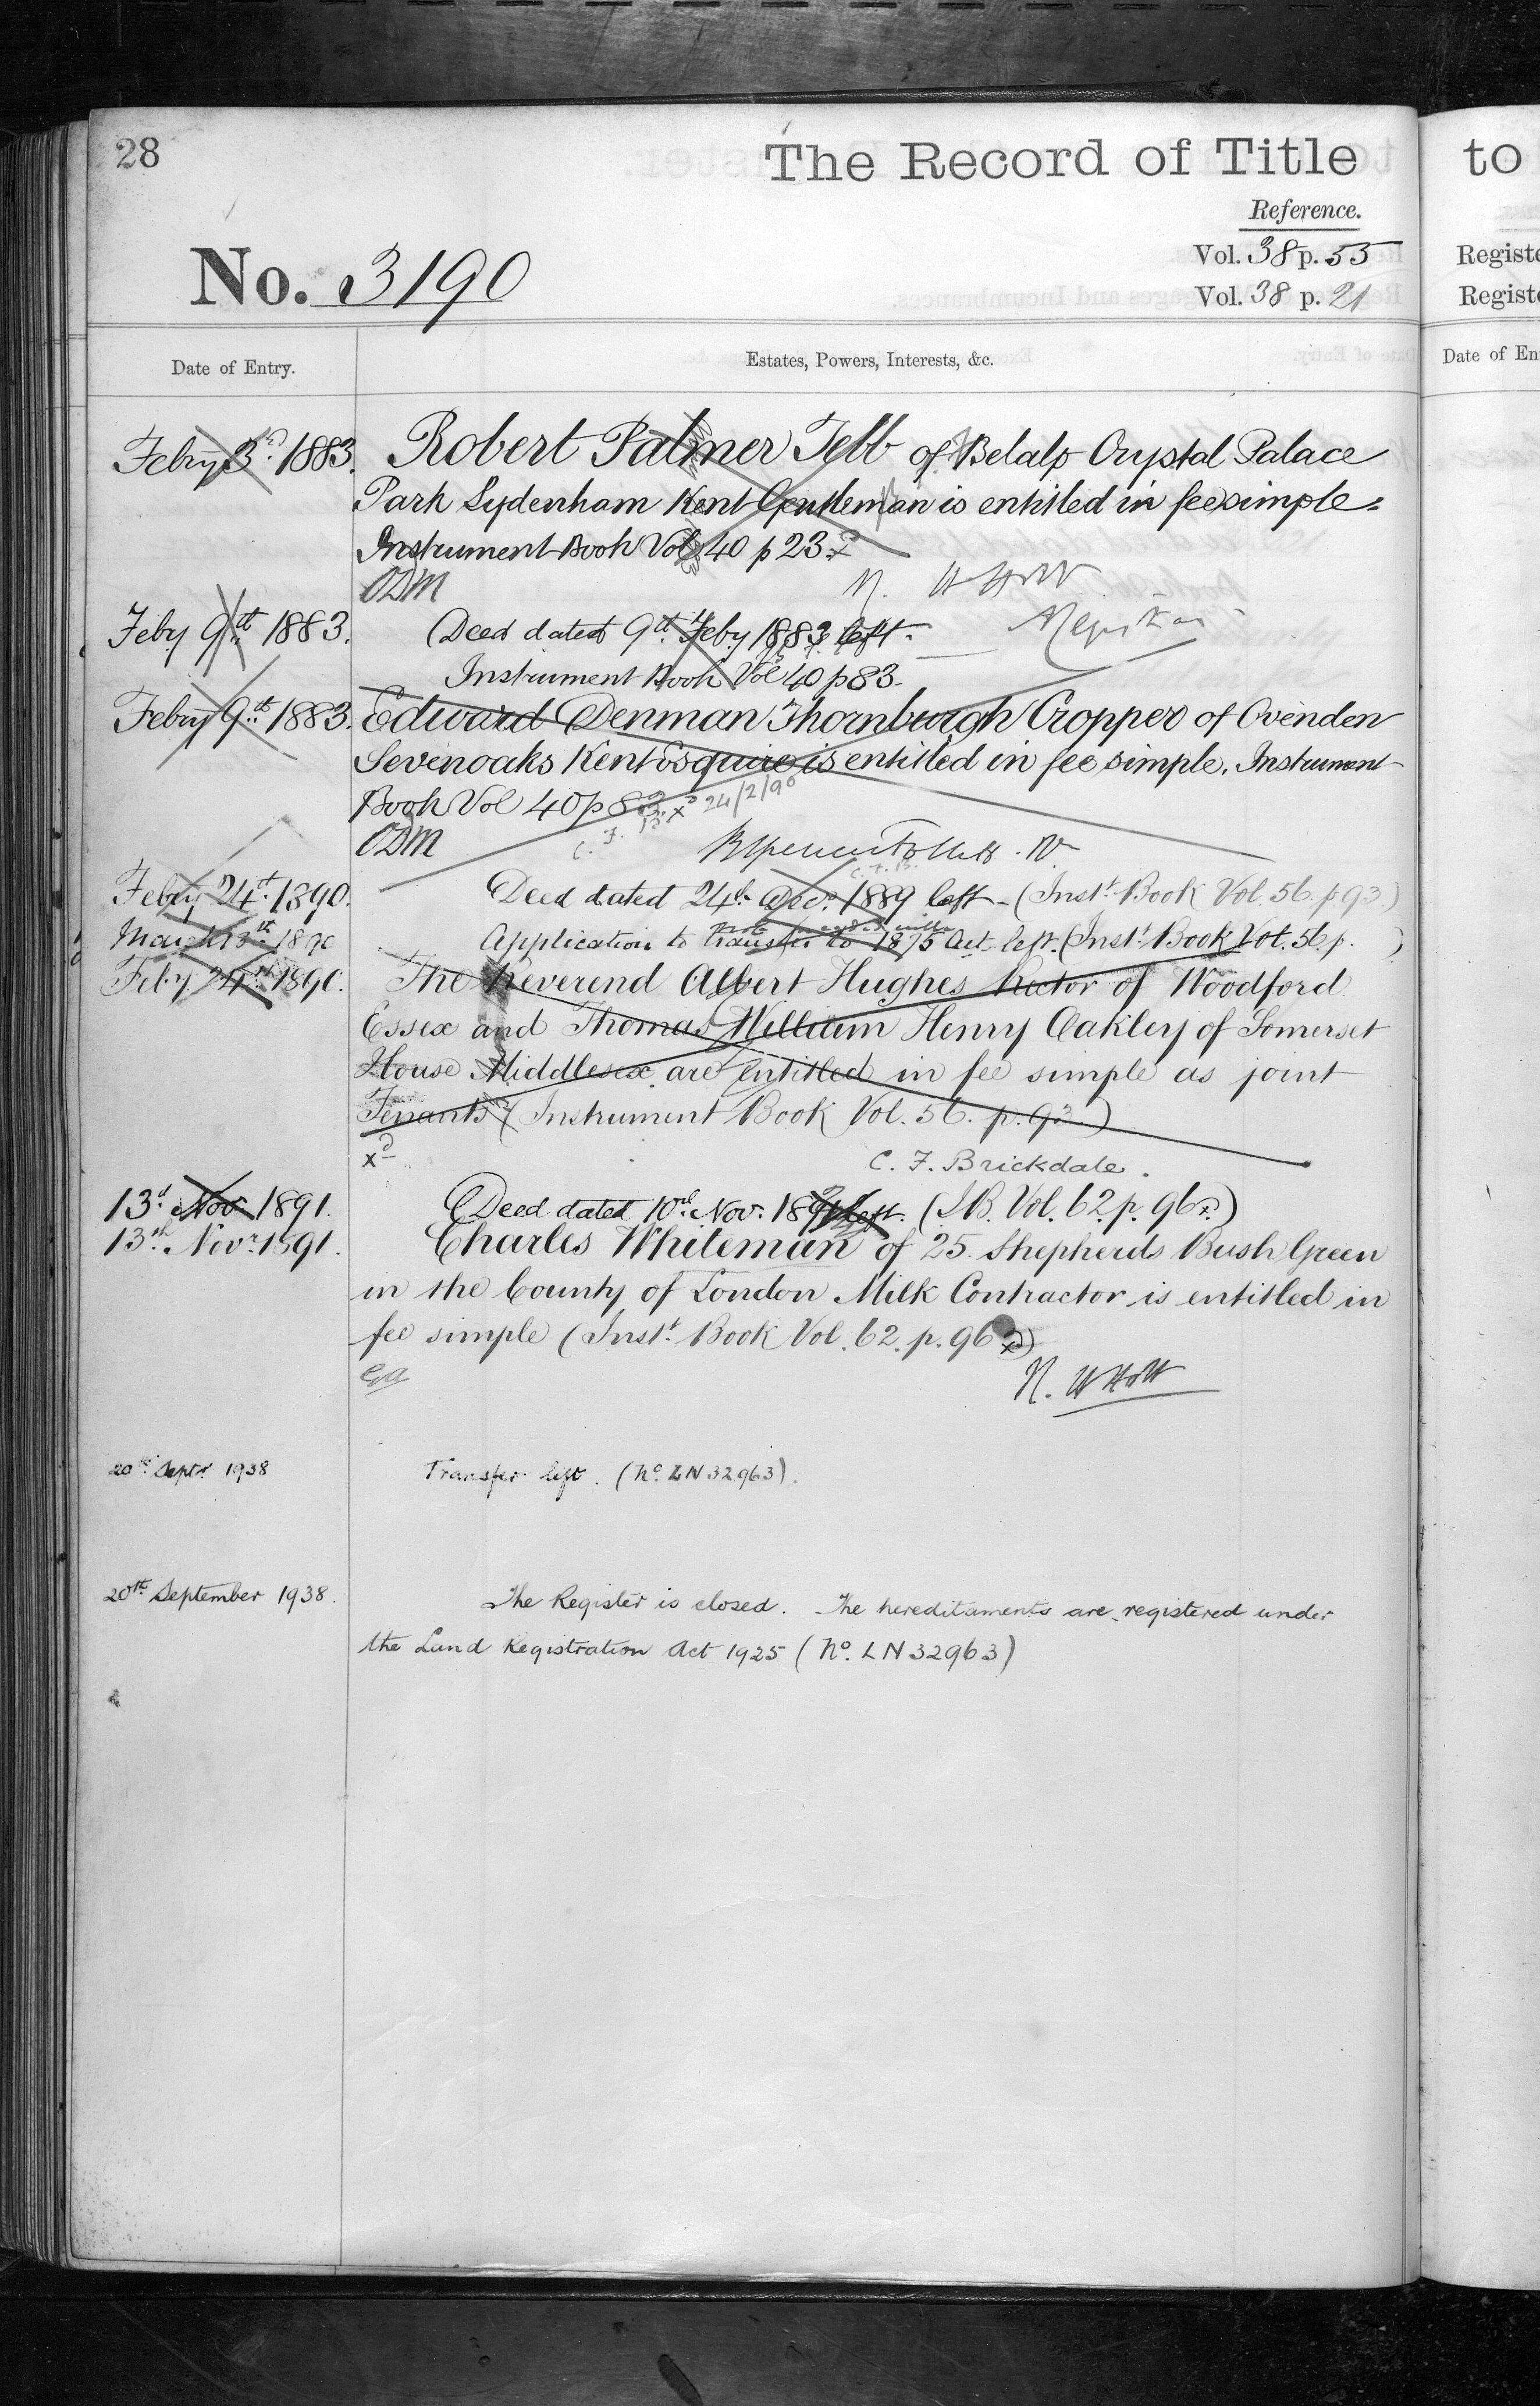 28
The Record of Title
to
Reference.
Vol. 38 p. 55
Registe
No. 3190
Vol. 38 p. 21
Registe
Date of Entry.
Estates, Powers, Interests, &c.
Date of En
Febry 3rd 1883.
Robert Palmer Tebb of Belalp Crystal Palace
Park Sydenham Kent Gentleman is entitled in fee simple
Instrument Book Vol 40 p 23 xd
ODM
Registrar
Feby 9th 1883.
Deed dated 9th Feby 1883 left.
Instrument Book Vol 40 p 83.
Febry 9th 1883.
Edward Denman Thornburgh Cropper of Ovenden
Sevenoaks Kent Esquire is entitled in fee simple. Instrument
Book Vol 40 p 83. xd 24/2/90
C. F. B.
ODM
C. F. B.
Feby 24th 1890.
Deed dated 24th Decr. 1889 left - (Inst. Book Vol. 56. p 93.)
March 13th 1890
Application to transfer to 1875 Act left. (Inst. Book Vol. 56. p. )
Feby 24th 1890.
The Reverend Albert Hughes Rector of Woodford
Essex and Thomas William Henry Oakley of Somerset
House Middlesex are entitled in fee simple as joint
Tenants (Instrument Book Vol. 56. p. 93.)
xd
C. F. Brickdale.
13d Nov. 1891.
Deed dated 10th Nov. 1891 left. (I.B. Vol. 62. p. 96 xd)
13th Novr. 1891.
Charles Whiteman of 25. Shepherds Bush Green
in the County of London Milk Contractor is entitled in
fee simple (Inst. Book Vol. 62. p. 96 xd)
20th Septr 1938
Transfer left. (No. LN 32963).
20th September 1938.
The Register is closed. The hereditaments are registered under
the Land Registration Act 1925 (No. LN 32963)